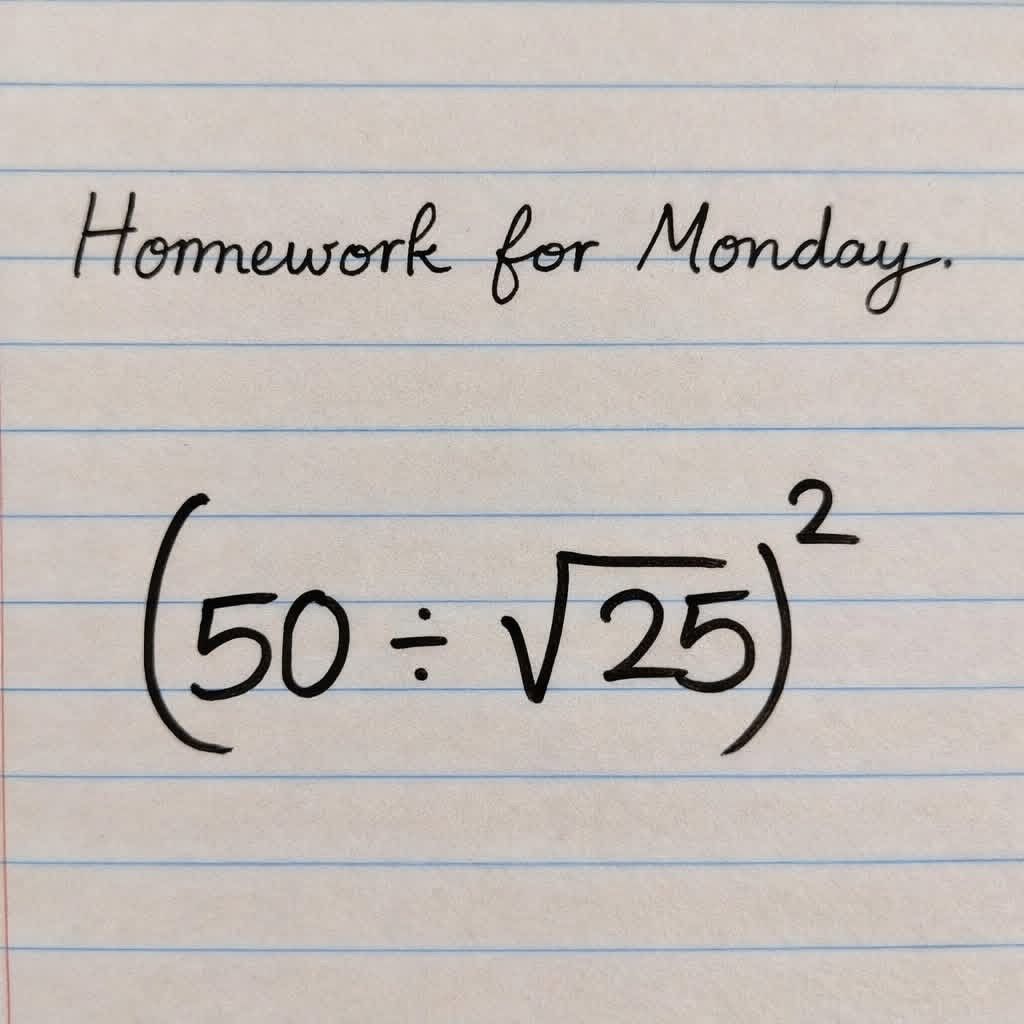 Homework for Monday.
(50 ÷ √25)²